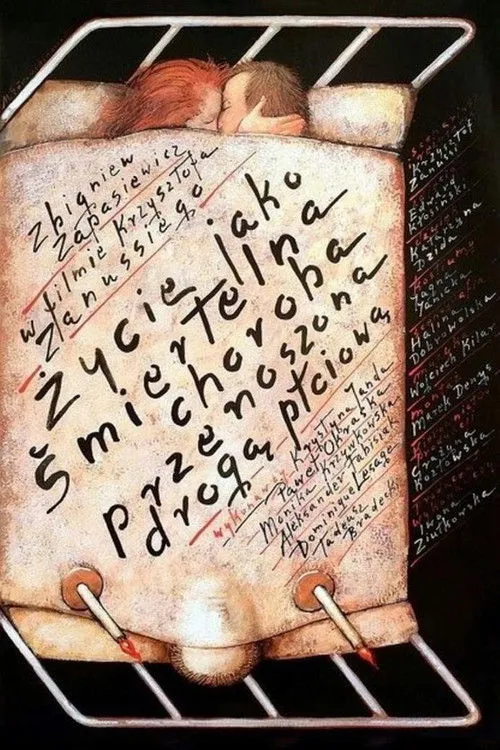 Zbigniew
Zapasiewicz
w filmie Krzysztofa
Zanussiego
Życie jako
śmiertelna
choroba
przenoszona
drogą płciową
wykonawcy Krystyna Janda
Paweł Okraska
Monika Krzywkowska
Aleksander Fabisiak
Dominique Lesage
Tadeusz
Bradecki
scenariusz
Krzysztof
Zanussi
Edward
Kłosiński
Halina
Dobrowolska
Wojciech Kilar
Marek Denys
Grażyna
Kozłowska
Iwona
Ziułkowska